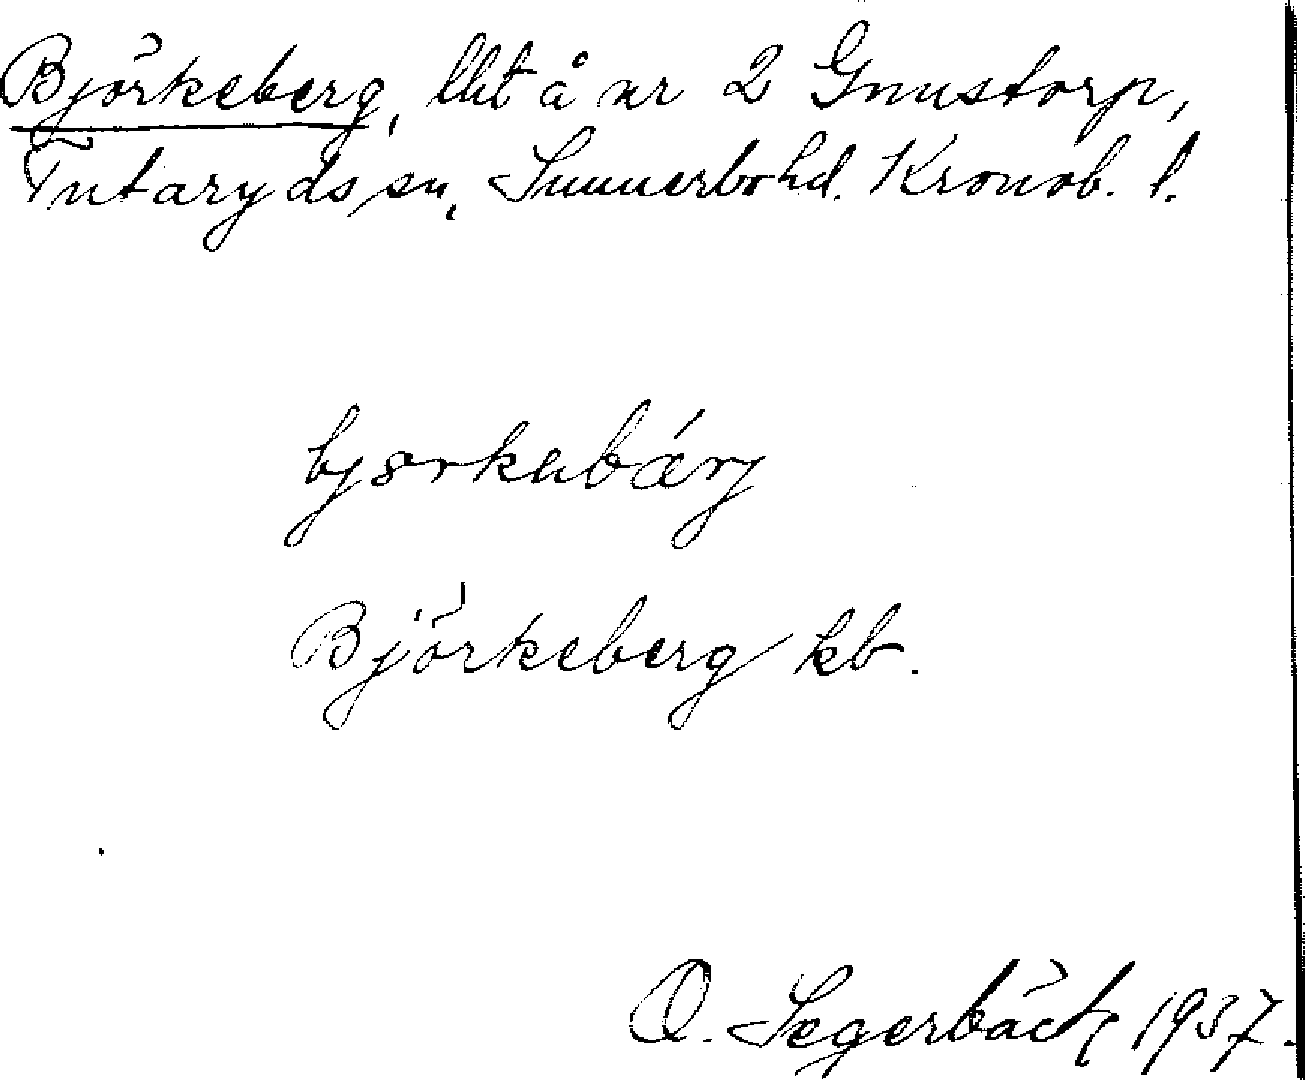 Björkeberg, lht å nr 2 Gnustorp,
Tutaryds sn, Sunnerbo hd. Kronob. l.
bjørkabǽrj
Björkeberg kb.
O. Segerbäck 1937.